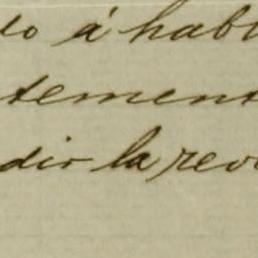 do á habl
tement
dir la rev